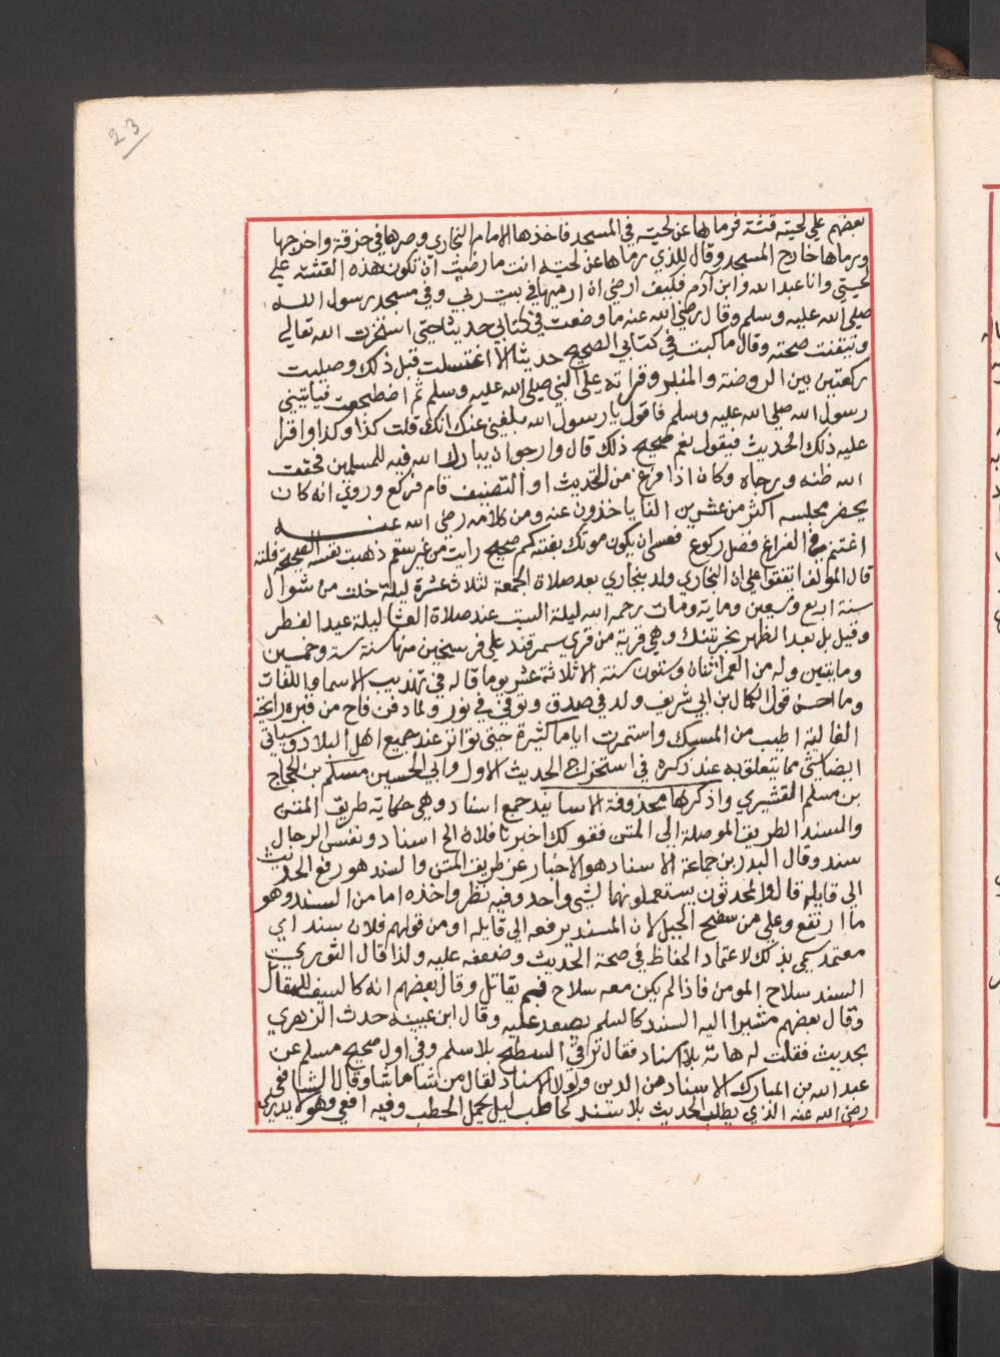 23
بعضهم علي لحيته قشة فرماها عن لحيته في المسجد فاخذها الامام البخاري وصرها في خرقة واخرجها
ورماها خارج المسجد وقال للذي رماها عن لحيته انت ما رضيت ان تكون هذه القشة علي
لحيتي وانا عبد الله وابن آدم فكيف ارضي ان ارميها في بيت ربي وفي مسجد رسول الله
صلي الله عليه وسلم وقال رضي الله عنه ما وضعت في كتابي حديثا حتي استخرت الله تعالي
وتيقنت صحته وقال ما كتبت في كتابي الصحيح حديثا الا اغتسلت قبل ذلك وصليت
ركعتين بين الروضة والمنبر وقراته علي النبي صلي الله عليه وسلم ثم اضطجعت فياتيني
رسول الله صلي الله عليه وسلم فاقول يا رسول الله بلغني عنك انك قلت كذا وكذا واقرا
عليه ذلك الحديث فيقول نعم صحيح ذلك قال وارجوا ان يبارك الله فيه للمسلمين فحقق
الله ظنه ورجاه وكان اذا فرغ من التحديث او التصنيف قام فركع وروي انه كان
يحضر مجلسه اكثر من عشرين الفا ياخذون عنه ومن كلامه رضي الله عنه
اغتنم في الفراغ فضل ركوع فعسي ان يكون موتك بغتة كم صحيح رايت من غير سقم ذهبت نفسه الصحيحة فلته
قال المؤلف اتفقوا علي ان البخاري ولد ببخاري بعد صلاة الجمعة لثلاث عشرة ليلة خلت من شوال
سنة اربع وتسعين وماية ومات رحمه الله ليلة السبت عند صلاة العشا ليلة عيد الفطر
وقيل بل بعد الظهر بخرتنك وهي قرية من قري سمرقند علي فرسخين منها سنة ستة وخمسين
ومايتين وله من العمر اثنان وستون سنة الا ثلاثة عشر يوما قاله في تهذيب الاسما واللغات
وما احسن قول الكمال بن ابي شريف ولد في صدق وتوفي في نور ولما دفن فاح من قبره رائحة
الغالية اطيب من المسك واستمرت اياما كثيرة حتي تواتر عند جميع اهل البلاد وسياتي
ايضا شي مما يتعلق به عند ذكره في استخراج الحديث الاول وابي الحسين مسلم بن الحجاج
بن مسلم القشيري واذكرها محذوفة الاسانيد جمع اسناد وهي حكاية طريق المتن
والسند الطريق الموصلة الي المتن فقولك اخبرنا فلان الخ اسناد ونفس الرجال
سند وقال البدر بن جماعة الاسناد هو الاخبار عن طريق المتن والسند هو رفع الحديث
الي قايله قال والمحدثون يستعملونهما لشي واحد وفيه نظر واخذه اما من السند وهو
ما ارتفع وعلي من سفح الجبل لان المسند يرفعه الي قايله او من قولهم فلان سند اي
معتمد سمي بذلك لاعتماد الحفاظ في صحة الحديث وضعفه عليه ولذا قال الثوري
السند سلاح المومن فاذا لم يكن معه سلاح فبم يقاتل وقال بعضهم انه كالسيف للمقاتل
وقال بعضهم مشيرا اليه السند كالسلم يصعد عليه وقال ابن عيينه حدث الزهري
بحديث فقلت له هاته بلا اسناد فقال ترقي السطح بلا سلم وفي اول صحيح مسلم عن
عبد الله بن المبارك الاسناد من الدين ولولا الاسناد لقال من شا ما شا وقال الشافعي
رضي الله عنه الذي يطلب الحديث بلا سند كحاطب ليل يحمل الحطب وفيه افعي وهو لا يدري